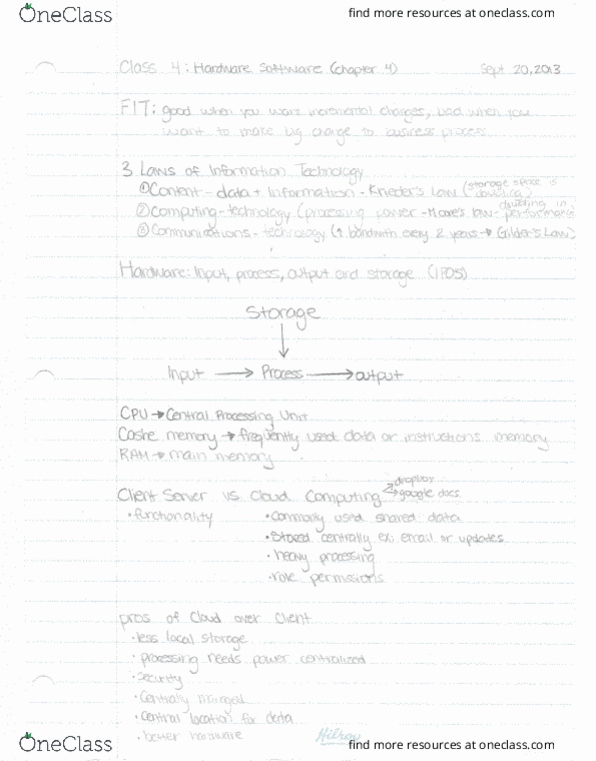 OneClass
find more resources at oneclass.com
Class 4: Hardware Software (Chapter 4) Sept 20, 2013
FIT: good when you want incremental changes, bad when you
want to make big change to business process
3 Laws of Information Technology
①Content - data + Information - Kryder's Law (storage space is doubling)
②Computing - technology (processing power - Moore's law - doubling in performance
③Communications - technology (↑ bandwith every 2 years → Gilder's Law)
Hardware: Input, process, output and storage (IPOS)
Storage
Input → Process → output
CPU → Central Processing Unit
Cashe memory → frequently used data or instructions memory
RAM → main memory
Client Server vs Cloud Computing → dropbox
→ google docs
• functionality
• commonly used shared data
• stored centrally ex: email or updates
• heavy processing
• role permissions
pros of Cloud over Client
• less local storage
• processing needs power centralized
• security
• Centrally managed
• Central location for data
• better hardware
Hilroy
OneClass
find more resources at oneclass.com